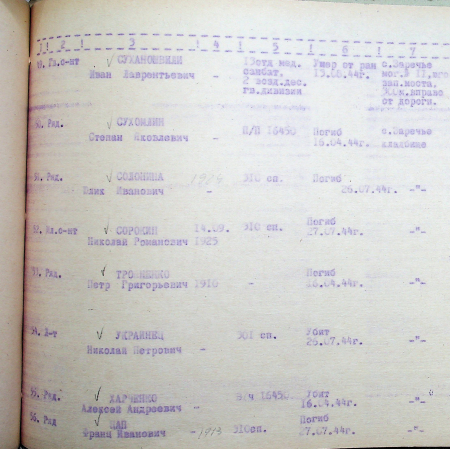 1! 2 ! 3 ! 4 ! 5 ! 6 ! 7
49. Гв.с-нт СУХАНОШВИЛИ 13отд мед. Умер от ран с.Заречье
Иван Лаврентьевич - санбат, 13.08.44г. мог.№ 17,
2 возд.дес. зап.моста,
гв.дивизия 300м.вправо
от дороги.
50. Ряд. СУХОМЛИН - П/П 16450 Погиб с.Заречье
Степан Яковлевич 16.04.44г. кладбище
Ряд. СОЛОНИНА 1914 310 сп. Погиб
Иванович - 26.07.44г. -"-
52. Мл.с-нт СОРОКИН 14.09. 310 сп. Погиб
Николай Романович 1925 27.07.44г. -"-
53. Ряд. Погиб
Петр Григорьевич 1910 - 26.04.44г. -"-
54. УКРАИНЕЦ 301 сп. Убит
Николай Петрович - 26.07.44г. -"-
55. Ряд. ХАРЧЕНКО в/ч 16450 Убит
Алексей Андреевич - 16.04.44г. -"-
56. Ряд ЦАП Погиб
Франц Иванович - 1913 310сп. 27.07.44г. -"-